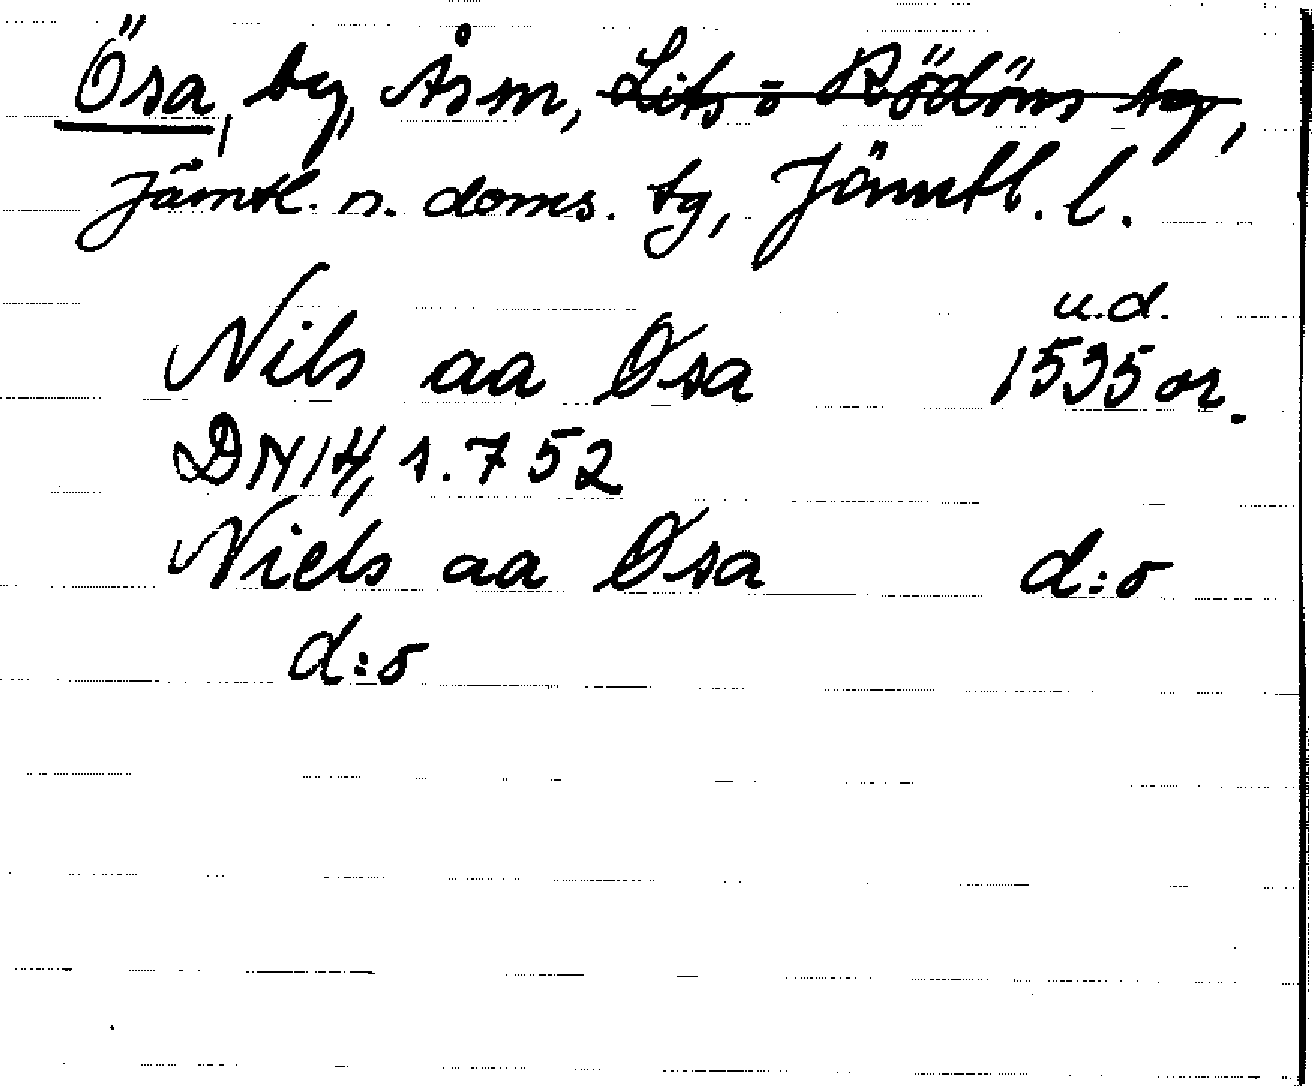 Ösa, by, Åsm, Lits o Rödöns tg,
Jämtl. n. doms. tg, Jämtl. l.
u.d.
Nils aa Øsa 1535 or.
DN 14, s. 752
Niels aa Øsa d:o
d:o